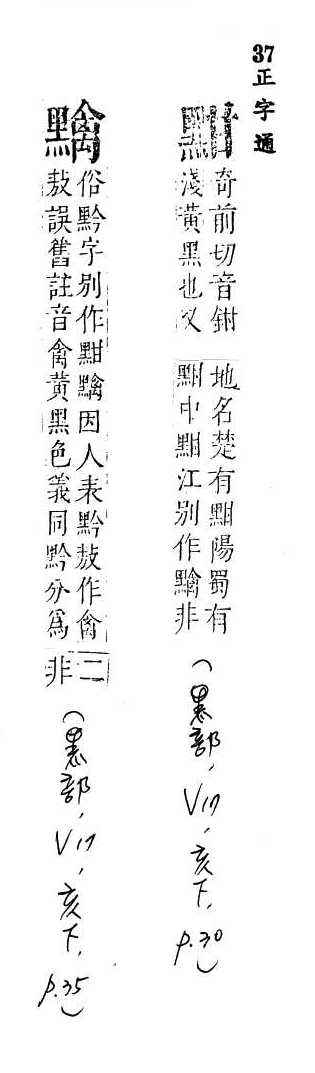 37正字通
黚
奇前切音鉗
淺黃黑也又
地名楚有黚陽蜀有
黚中黚江別作非
(黒部, V17, 亥下, p.30)
俗黔字別作黚因人表黔敖作禽
敖誤舊註音禽黃黑色義同黔分爲
二
非
(黒部, V17, 亥下, p.35)